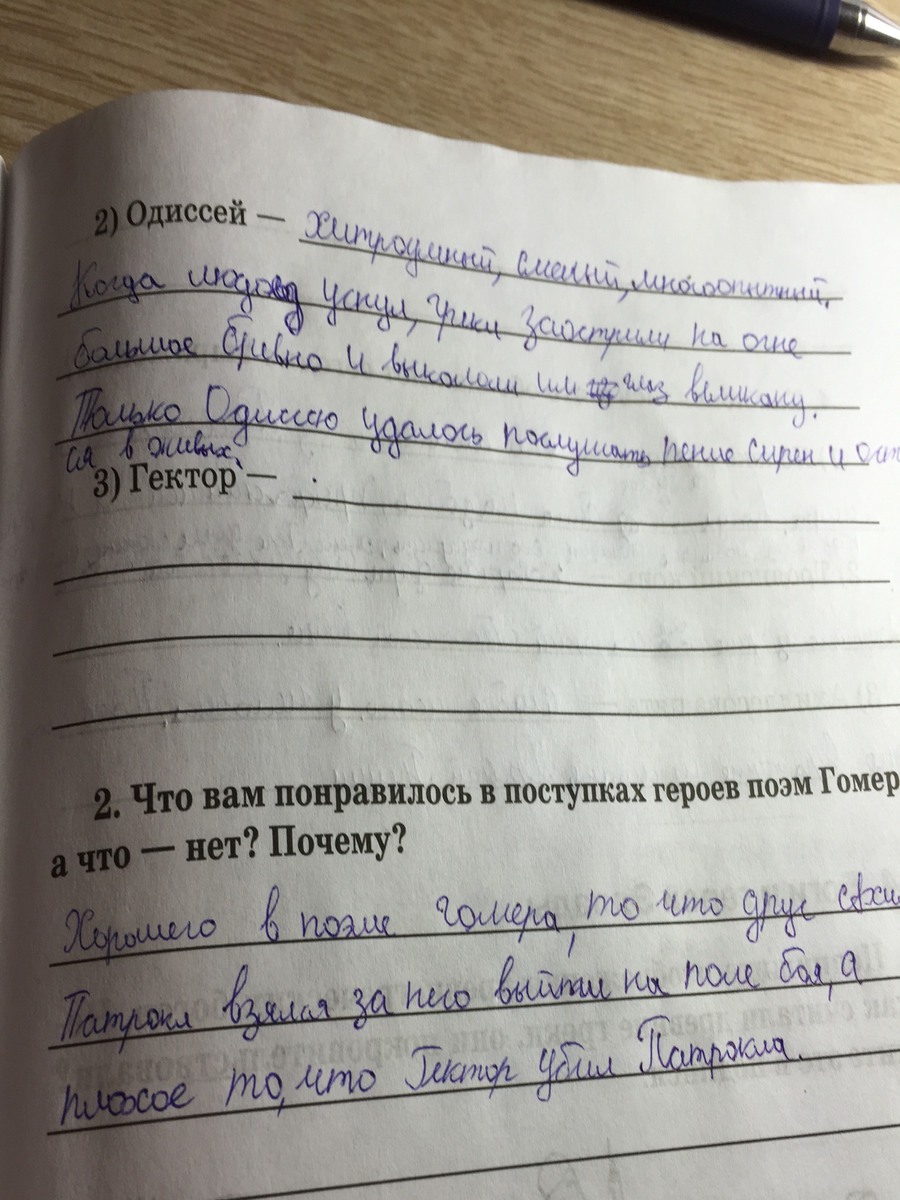 2) Одиссей — хитроумный, смелый, многоопытный.
Когда людоед уснул, греки заострили на огне
большое бревно и выкололи им глаз великану.
Только Одиссею удалось послушать пение сирен и ост
ся в живых.
3) Гектор —
2. Что вам понравилось в поступках героев поэм Гомер
а что — нет? Почему?
Хорошего в поэме Гомера, то что друг
Патрокл взялся за него выйти на поле боя, а
плохое то, что Гектор убил Патрокла.